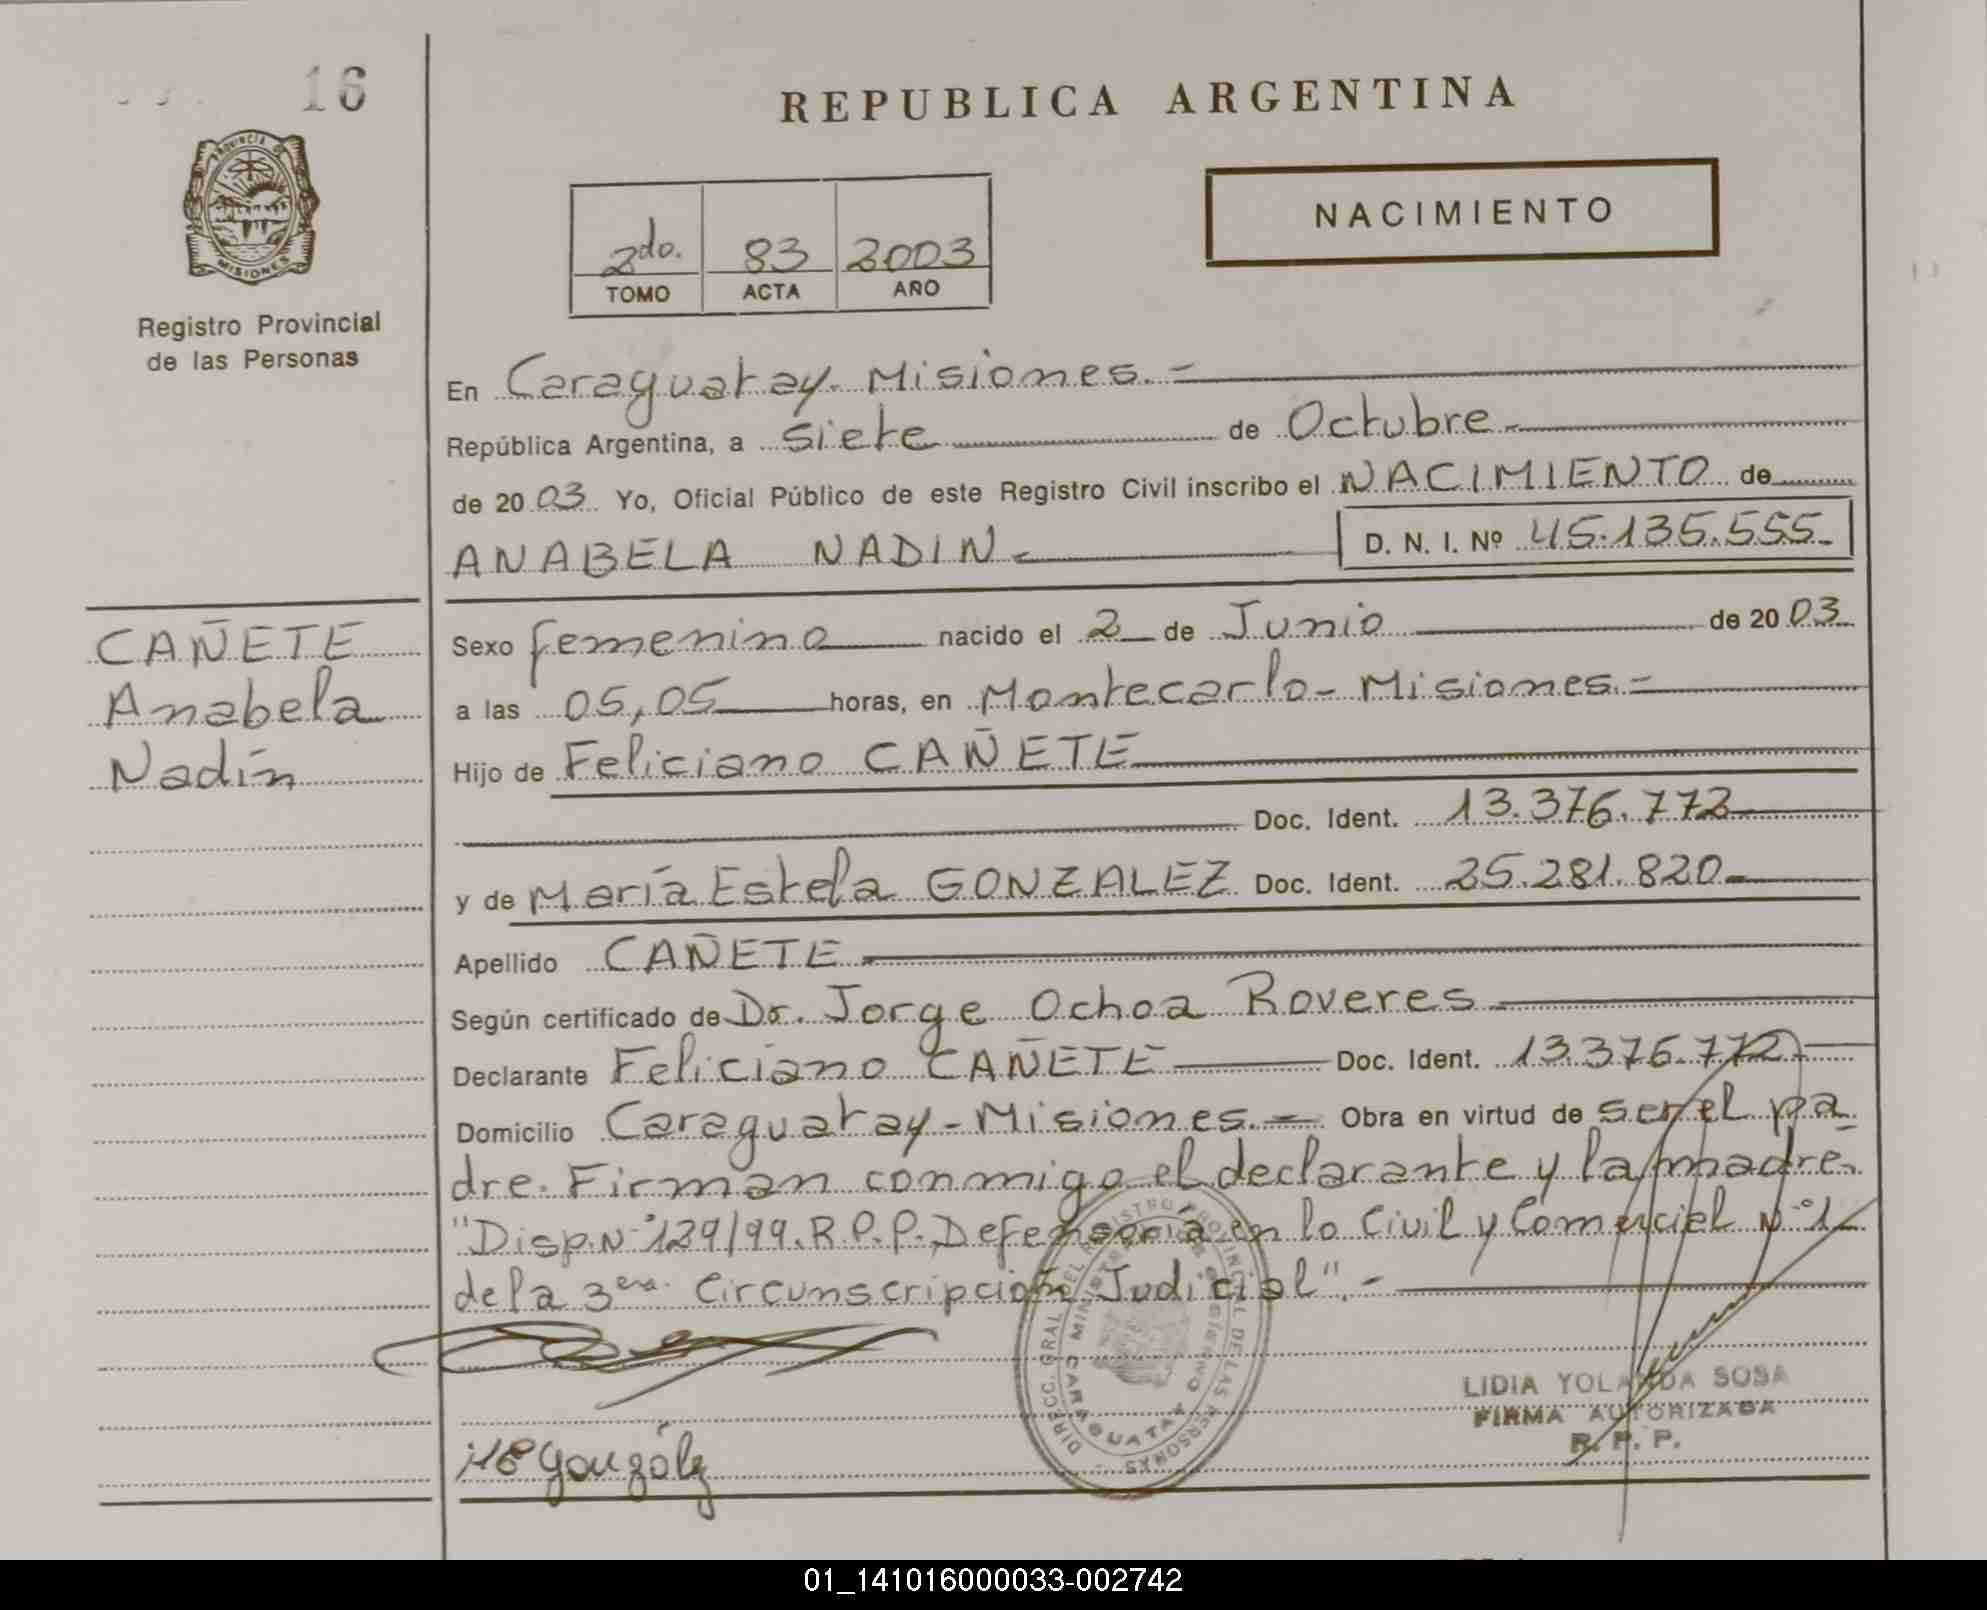 16
REPUBLICA ARGENTINA
PROVINCIA DE
MISIONES
Registro Provincial
de las Personas
2do. 83 2003
TOMO ACTA AÑO
NACIMIENTO
En Caraguatay. Misiones.-
República Argentina, a siete de Octubre.-
de 2003. Yo, Oficial Público de este Registro Civil inscribo el NACIMIENTO de
ANABELA NADIN.- D. N. I. Nº 45.135.555.-
CAÑETE
Anabela
Nadín
Sexo femenino nacido el 2 de Junio de 2003.
a las 05,05 horas, en Montecarlo- Misiones.-
Hijo de Feliciano CAÑETE
Doc. Ident. 13.376.772
y de María Estela GONZALEZ Doc. Ident. 25.281.820.-
Apellido CAÑETE.-
Según certificado de Dr. Jorge Ochoa Roveres.-
Declarante Feliciano CAÑETE Doc. Ident. 13.376.772
Domicilio Caraguatay-Misiones.- Obra en virtud de ser el pa
dre. Firman conmigo el declarante y la madre.
"Disp. Nº 129/99. R.P.P. Defensoría en lo Civil y Comercial Nº 1
de la 3era. Circunscripción Judicial".-
DIRECC. GRAL DEL REGISTRO PROVINCIAL DE LAS PERSONAS
CARAGUATAY
LIDIA YOLANDA SOSA
FIRMA AUTORIZADA
R. P. P.
ME González
01_141016000033-002742